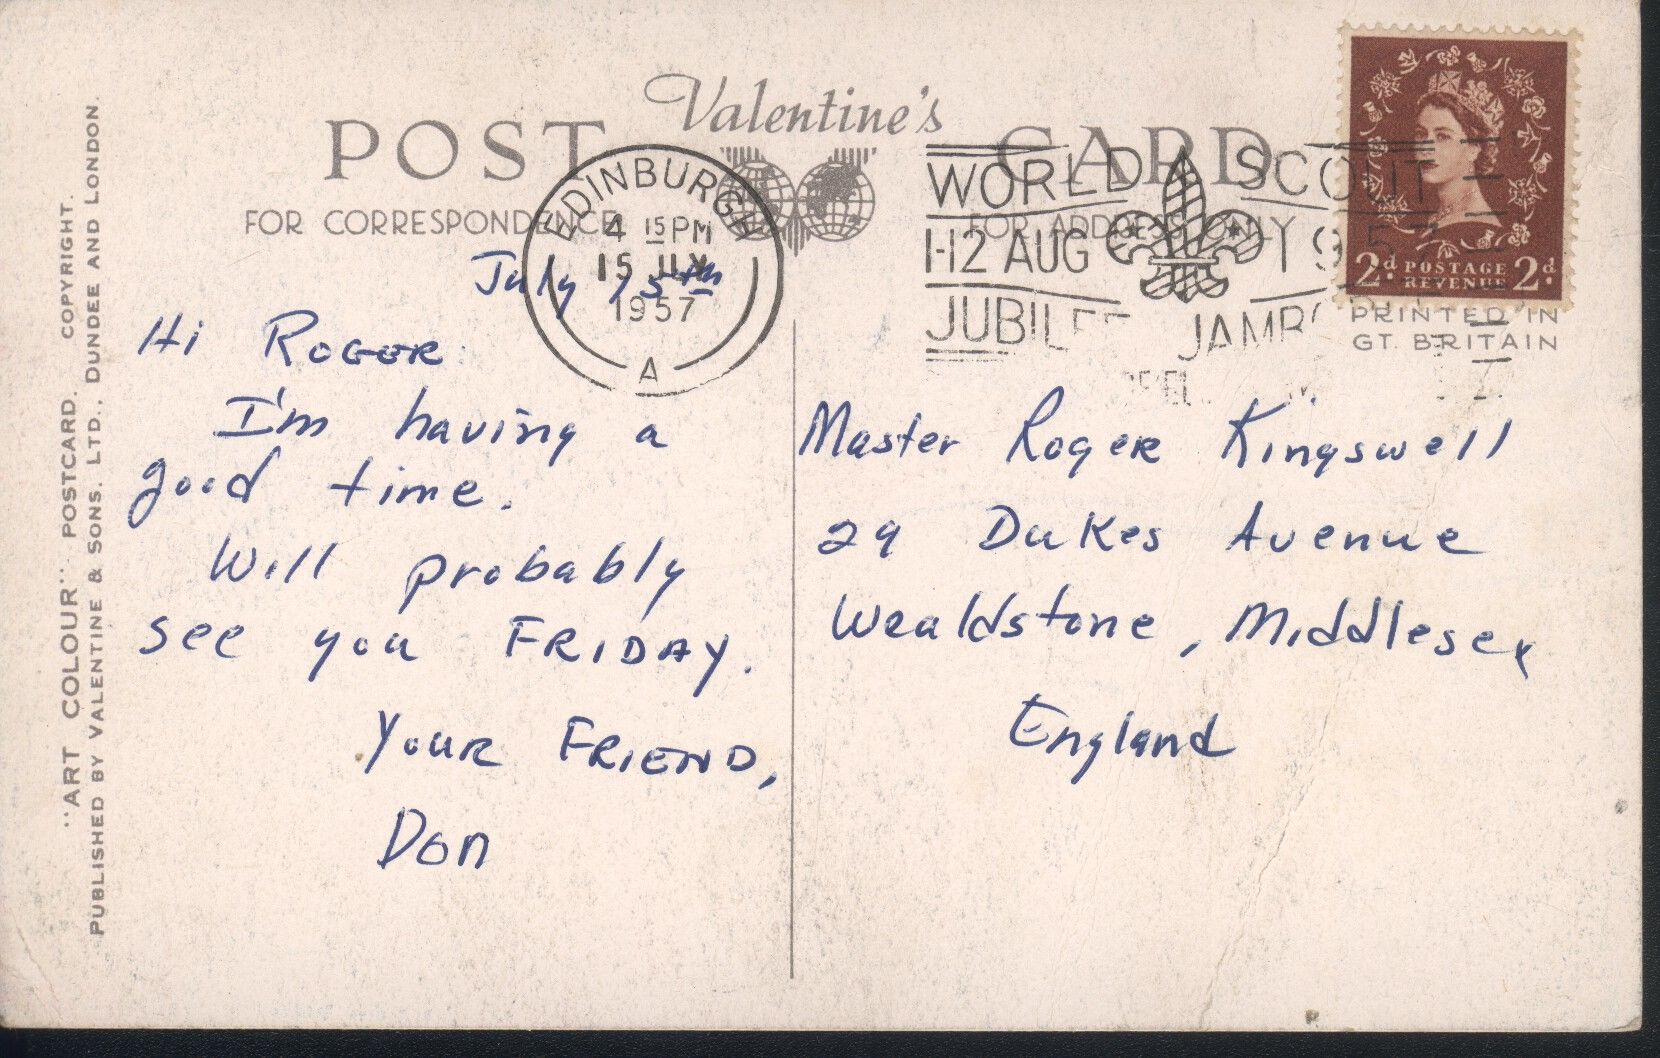 Valentine's
POST CARD
FOR CORRESPONDENCE
FOR ADDRESS ONLY
"ART COLOUR" POSTCARD. COPYRIGHT.
PUBLISHED BY VALENTINE & SONS. LTD., DUNDEE AND LONDON.
EDINBURGH
4 15 PM
15 JLY
1957
A
WORLD SCOUT
1-12 AUG 1957
JUBILEE
2d. POSTAGE REVENUE 2d.
PRINTED IN
GT. BRITAIN
July 15th
Hi ROGER
I'm having a
good time.
Will probably
see you FRIDAY.
YOUR FRIEND,
Don
Master Roger Kingswell
29 Dukes Avenue
Wealdstone, Middlesex
England